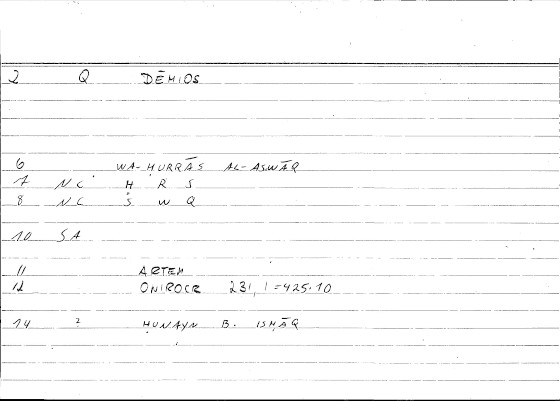 2 Q DĒMIOS
6 WA-ḤURRĀS AL-ASWĀQ
7 NC Ḥ R S
8 NC S W Q
10 SA
11 ARTEM
12 ONIROCR 231,1=425.10
14 2 ḤUNAYN B. ISḤĀQ